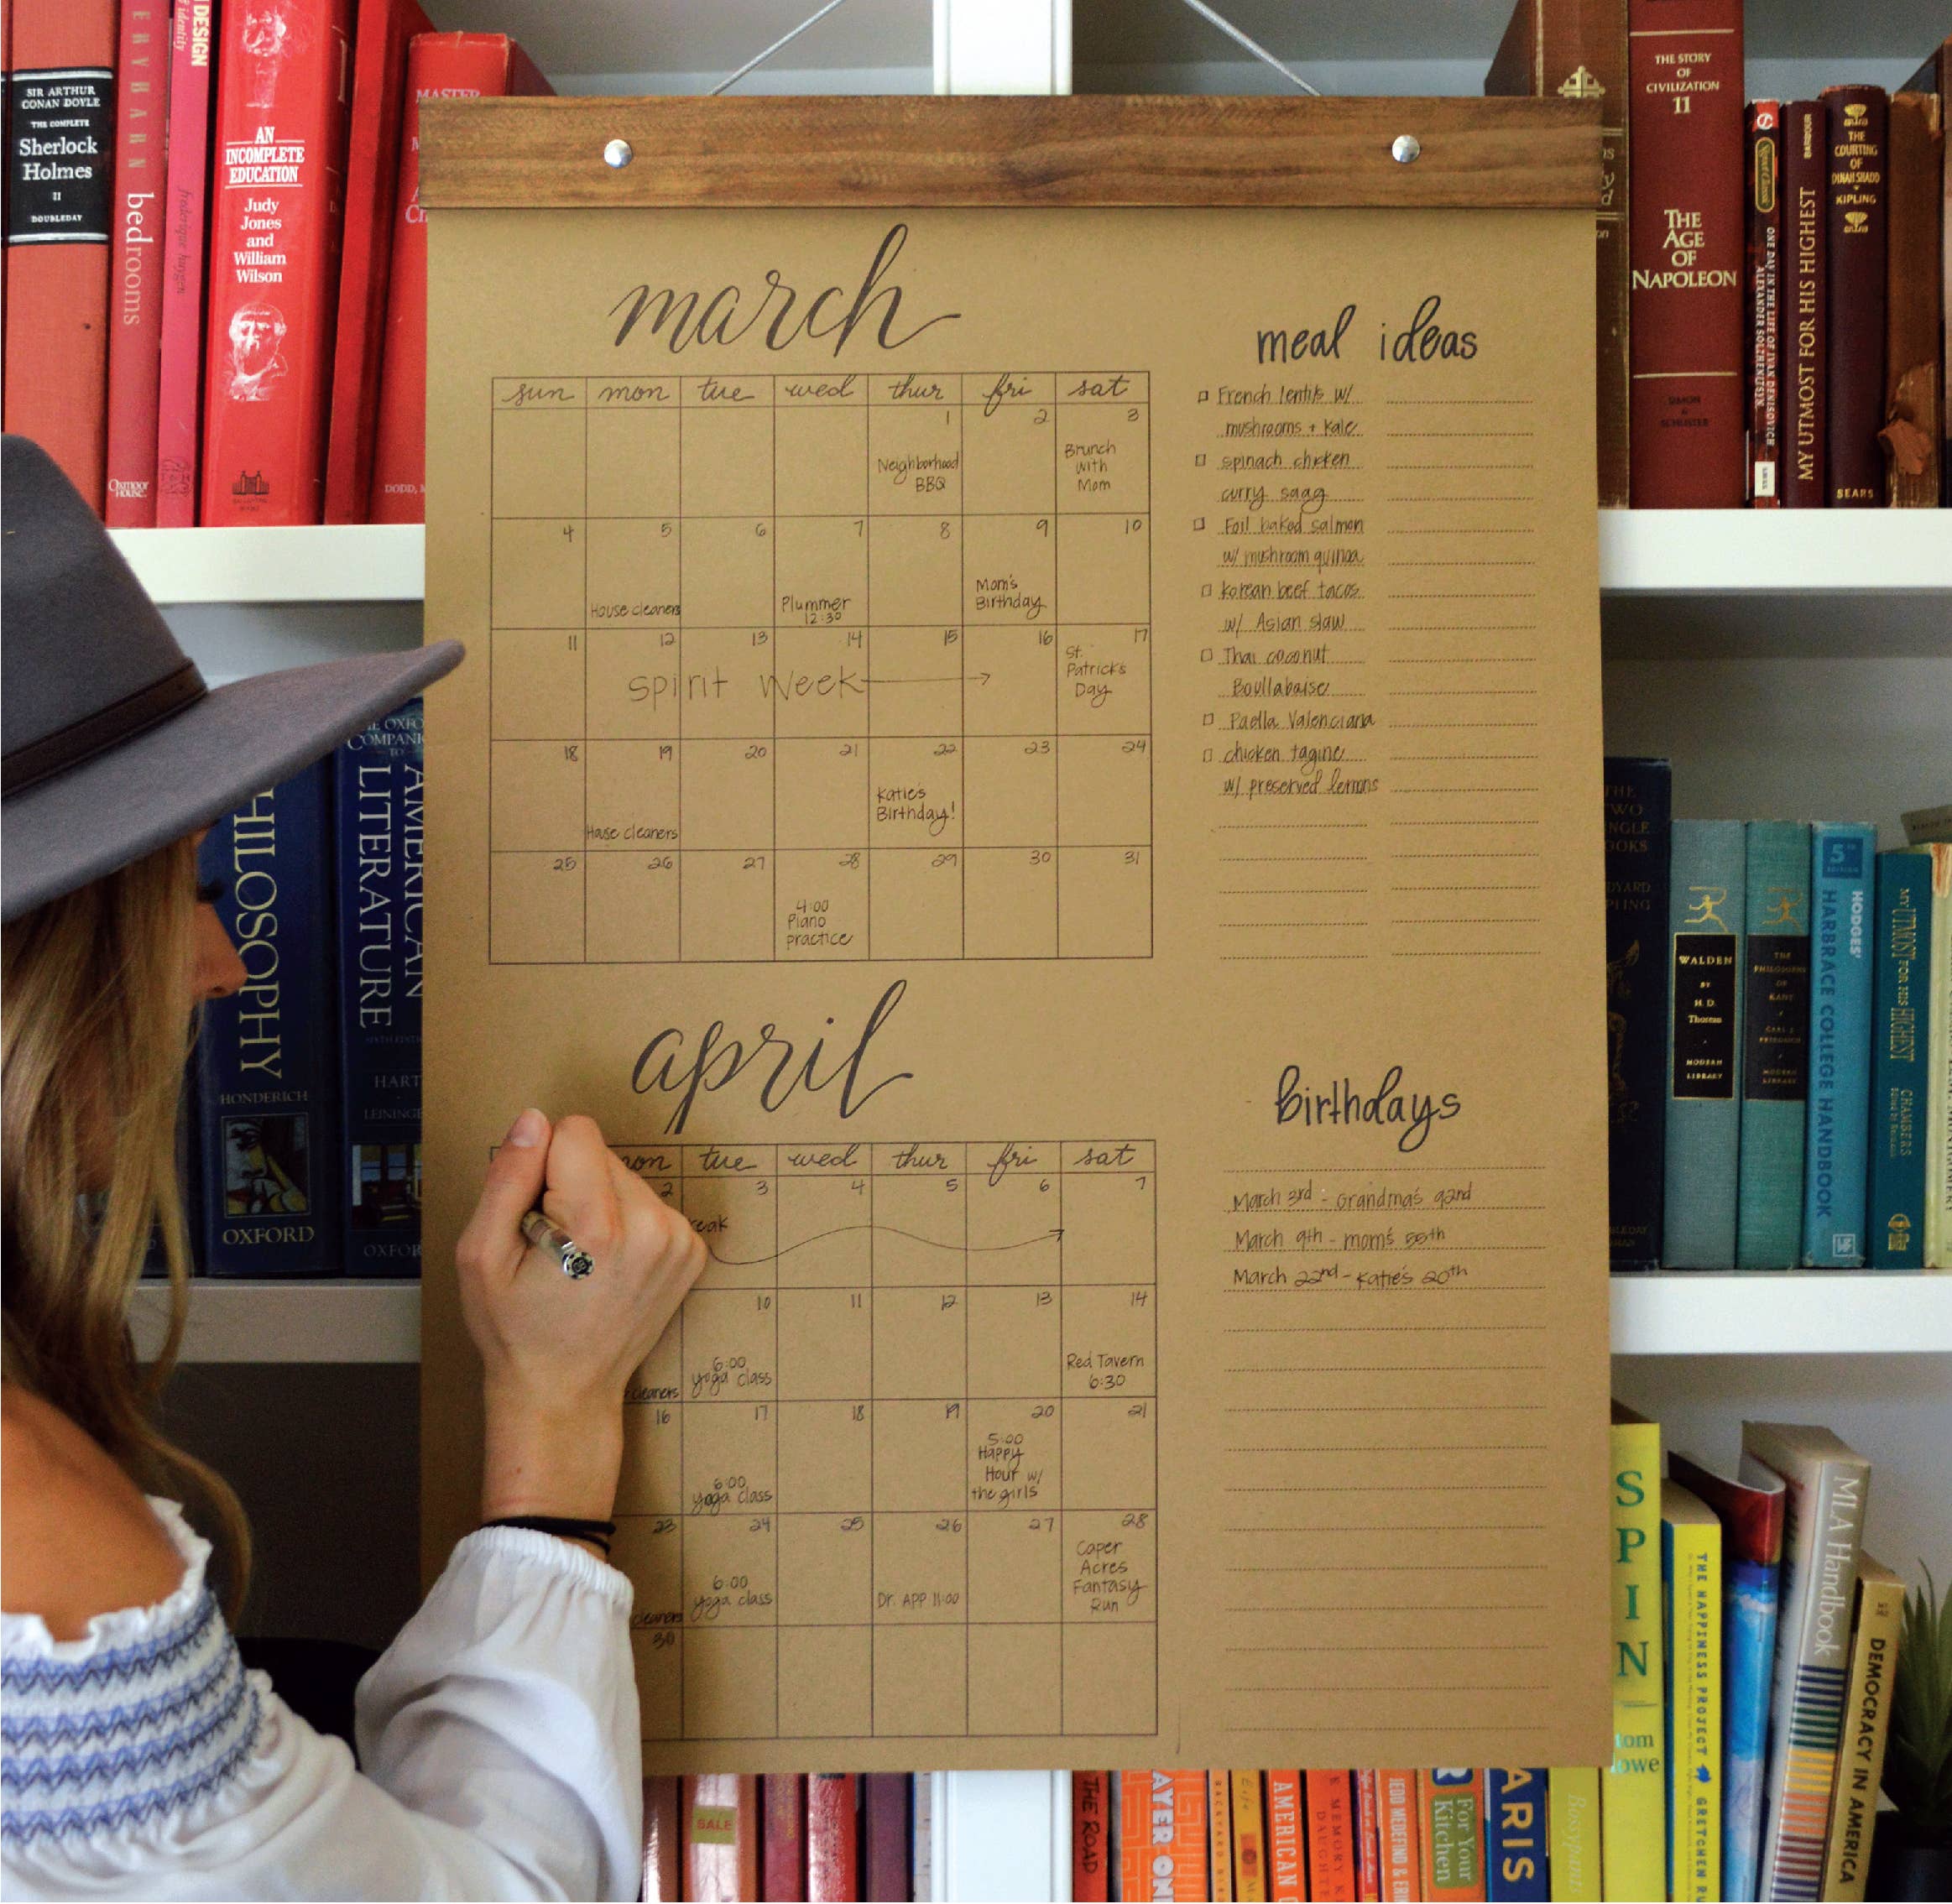 SIR ARTHUR
CONAN DOYLE
THE COMPLETE
Sherlock
Holmes
II
DOUBLEDAY
bedrooms
Oxmoor
House
DESIGN
identity
AN
INCOMPLETE
EDUCATION
Judy
Jones
and
William
Wilson
MASTER
DODD,
THE STORY
OF
CIVILIZATION
11
THE
AGE
OF
NAPOLEON
SIMON
&
SCHUSTER
Signet Classic
ONE DAY IN THE LIFE OF IVAN DENISOVICH
ALEXANDER SOLZHENITSYN
BARBOUR
MY UTMOST FOR HIS HIGHEST
THE
COURTING
OF
DINAH SHADD
KIPLING
SEARS
march
sun mon tue wed thur fri sat
1 2 3
Neighborhood
BBQ
Brunch
with
Mom
4 5 6 7 8 9 10
House cleaners
Plummer
12:30
Mom's
Birthday
11 12 13 14 15 16 17
Spirit Week
St.
Patricks
Day
18 19 20 21 22 23 24
House cleaners
Katie's
Birthday!
25 26 27 28 29 30 31
4:00
Piano
practice
meal ideas
French lentils w/
mushrooms + kale
spinach chicken
curry saag
Foil baked salmon
w/ mushroom quinoa
Korean beef tacos
w/ Asian slaw
Thai coconut
Boullabaise
Paella Valenciana
chicken tagine
w/ preserved lemons
april
mon tue wed thur fri sat
2 3 4 5 6 7
reak
10 11 12 13 14
cleaners
6:00
yoga class
Red Tavern
6:30
16 17 18 19 20 21
6:00
yoga class
5:00
Happy
Hour w/
the girls
23 24 25 26 27 28
cleaners
6:00
yoga class
Dr. APP 11:00
Caper
Acres
Fantasy
Run
30
birthdays
March 3rd - Grandma's 92nd
March 9th - mom's 55th
March 22nd - Katie's 20th
PHILOSOPHY
HONDERICH
OXFORD
THE OXFO
COMPAN
TO
AMERICAN
LITERATURE
HART
LEININGE
OXFOR
WALDEN
BY
H. D.
Thoreau
MODERN
LIBRARY
THE
PHILOSOPHY
OF
KANT
CARL J.
FRIEDRICH
MODERN
LIBRARY
5TH
EDITION
HODGES'
HARBRACE COLLEGE HANDBOOK
MY UTMOST FOR HIS HIGHEST
CHAMBERS
SPIN
tom
lowe
THE HAPPINESS PROJECT
GRETCHEN RU
MLA Handbook
DEMOCRACY IN AMERICA
SALE
THE ROAD
AYER ON
AMERICAN
For Your
Kitchen
ARIS